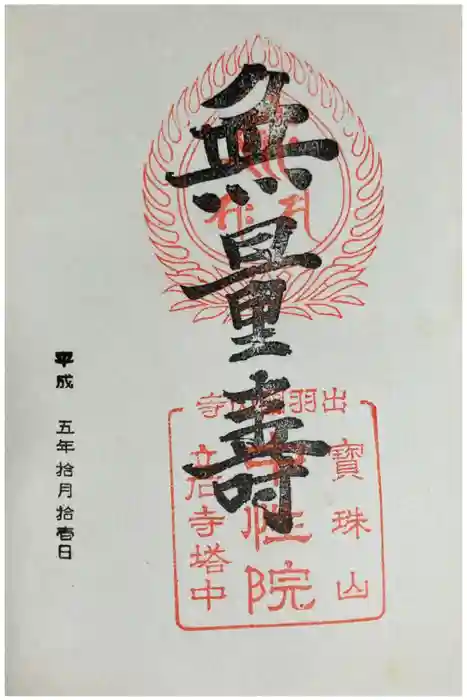 無量壽
出羽國山寺
寶珠山
中性院
立石寺塔中
平成 五年拾月拾壱日